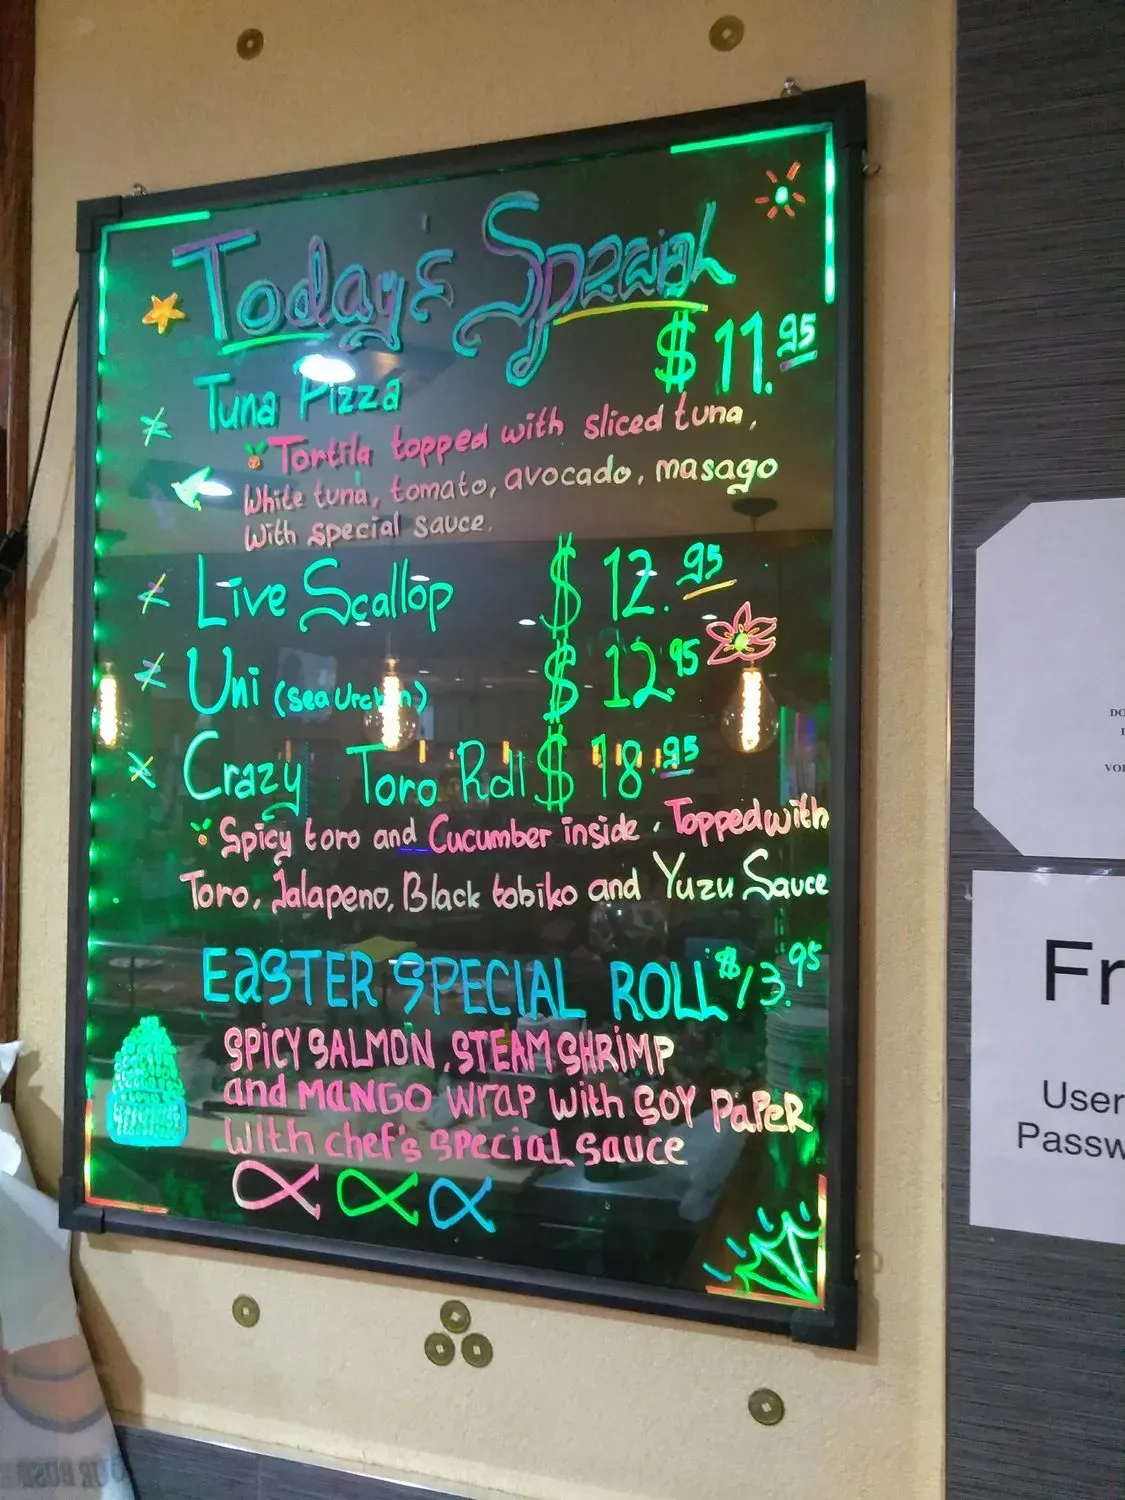 Today's Special
$11.95
Tuna Pizza
Tortila topped with sliced tuna,
White tuna, tomato, avocado, masago
With special sauce.
Live Scallop $12.95
Uni (sea urchin) $12.95
Crazy Toro Roll $18.95
Spicy toro and Cucumber inside. Topped with
Toro, Jalapeno, Black tobiko and Yuzu Sauce
EaSTER SPECIAL ROLL $13.95
SPICY SALMON, STEAM SHRiMP
and MANGO WraP with SOY PaPER
With chef's special sauce
Fr
User
Passw
DO
VO